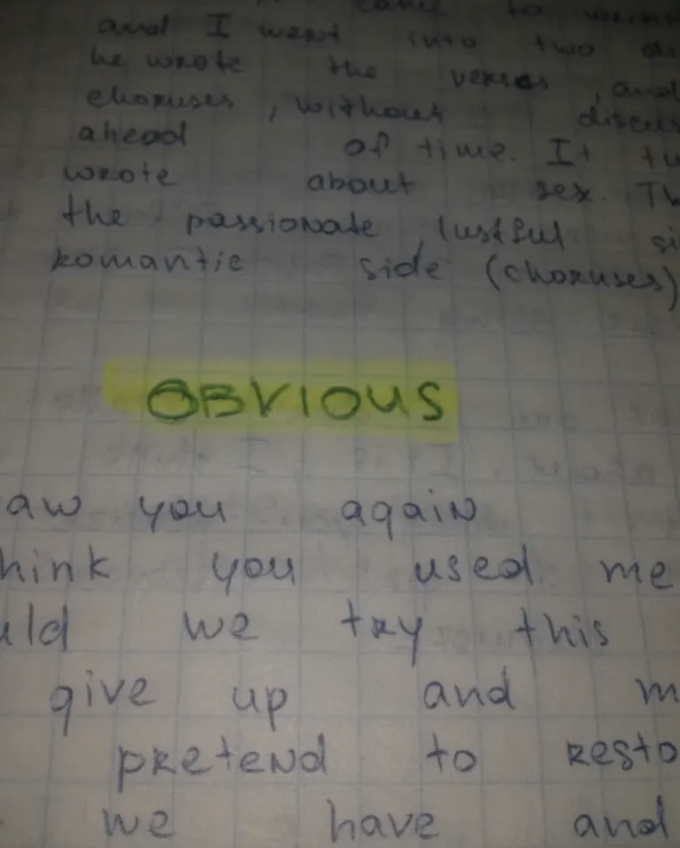 came to
and I went into two
he wrote the verses, and
choruses, without discus
ahead of time. It tu
wrote about sex. Th
the passionate, lustful si
romantic side (choruses)
OBVIOUS
aw you again
hink you used me
uld we try this
give up and m
pretend to resto
we have and